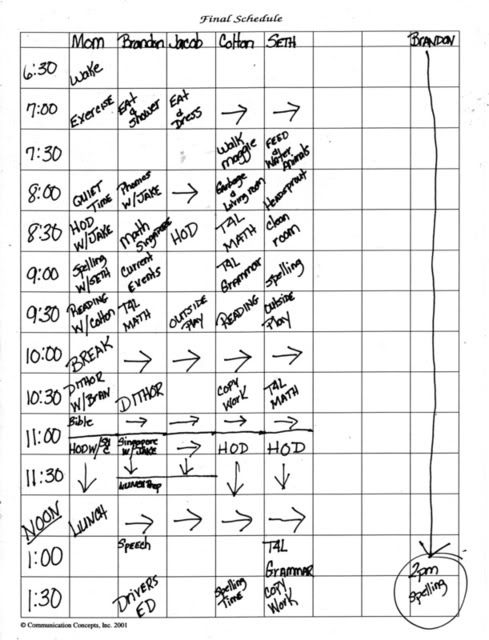 Final Schedule
Mom Brandon Jacob Colton SETH BRANDON
6:30 Wake
7:00 Exercise EAt & Shower EAt & Dress → →
7:30 Walk maggie FEED & Water Animals
8:00 QUIET TIME Phonics W/JAKE → Garbage & Living room Headsprout
8:30 HOD W/JAKE Math Singapore HOD T4L MATH Clean room
9:00 Spelling W/SETH Current Events T4L Grammar Spelling
9:30 READING W/Colton T4L MATH OUTSIDE PLAY READING Outside Play
10:00 BREAK → → → →
10:30 DITHOR W/BRAN DITHOR COPY Work T4L MATH
11:00 Bible → → → →
HOD W/ Singapore W/JAKE → HOD HOD
11:30 ↓ ↓ ↓ ↓ ↓
LUNCH Prep
NOON LUNCH → → → →
1:00 SPEECH T4L Grammar 2pm Spelling
1:30 DRIVERS ED Spelling Time COPY Work
© Communication Concepts, Inc. 2001